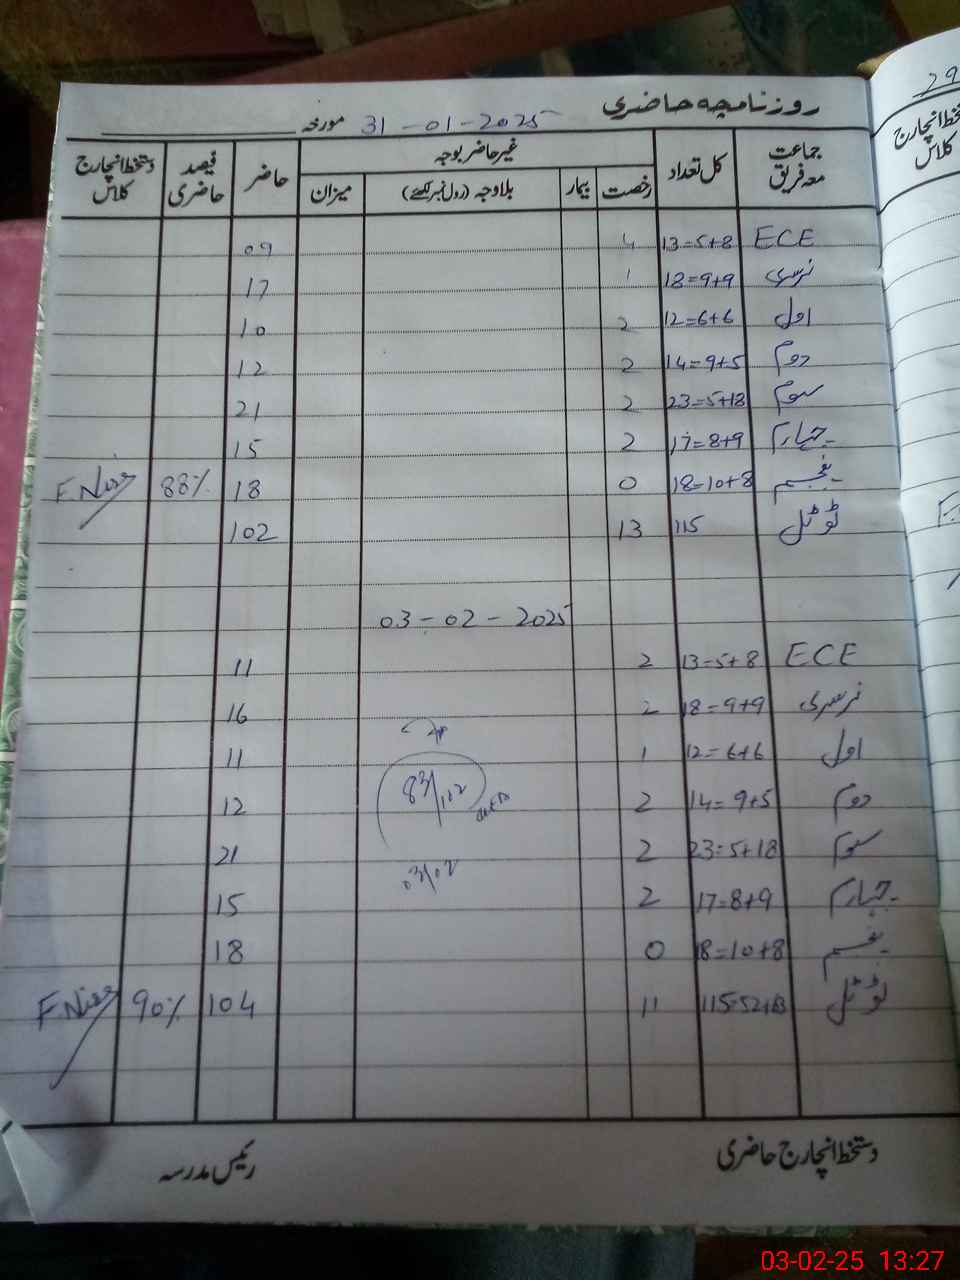 روزنامچہ حاضری
مورخہ 31-01-2025
جماعت معہ فریق | کل تعداد | غیر حاضر بوجہ | حاضر | فیصد حاضری | دستخط انچارج کلاس
رخصت | بیمار | بلاوجہ (رول نمبر لکھئے) | میزان
ECE 13=5+8 4 09
نرسری 18=9+9 1 17
اول 12=6+6 2 10
دوم 14=9+5 2 12
سوم 23=5+18 2 21
چہارم 17=8+9 2 15
پنجم 18=10+8 0 18 88%
ٹوٹل 115 13 102
03-02-2025
ECE 13=5+8 2 11
نرسری 18=9+9 2 16
اول 12=6+6 1 11
دوم 14=9+5 2 12
سوم 23=5+18 2 21
چہارم 17=8+9 2 15
پنجم 18=10+8 0 18
ٹوٹل 115=52+63 11 104 90%
03/02
دستخط انچارج حاضری
رئیس مدرسہ
29
دستخط انچارج
کلاس
03-02-25 13:27